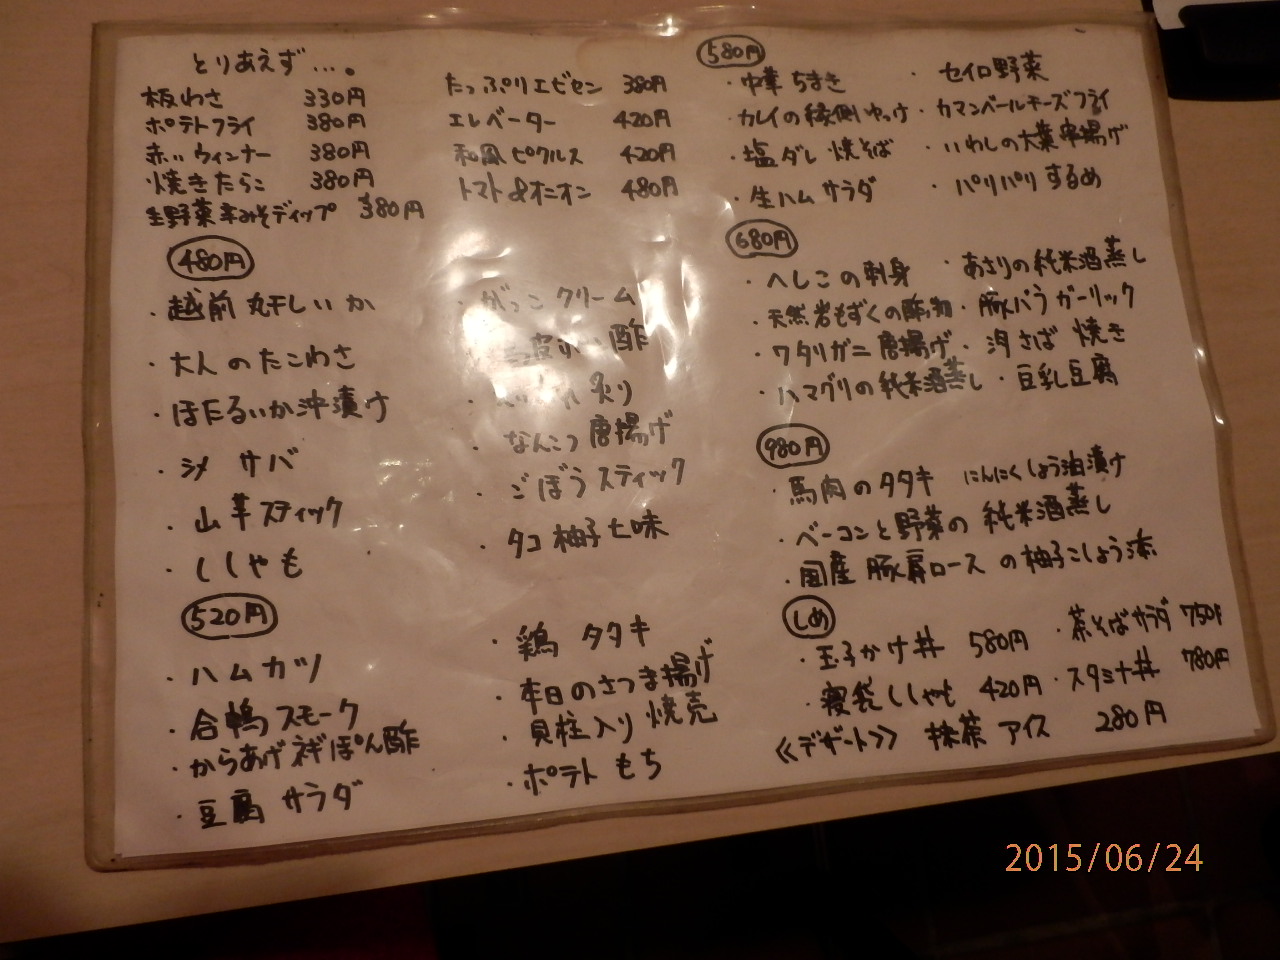 とりあえず…。
板わさ 330円
ポテトフライ 380円
赤いウィンナー 380円
焼きたらこ 380円
生野菜辛みそディップ 380円
たっぷりエビセン 380円
エレベーター 420円
和風ピクルス 420円
トマト&オニオン 480円
480円
・越前丸干しいか
・大人のたこわさ
・ほたるいか沖漬け
・シメサバ
・山芋スティック
・ししゃも
・がっこクリーム
皮 酢
炙り
・なんこつ唐揚げ
・ごぼうスティック
・タコ柚子七味
520円
・ハムカツ
・合鴨スモーク
・からあげネギぽん酢
・豆腐サラダ
・鶏タタキ
・本日のさつま揚げ
・貝柱入り焼売
・ポテトもち
580円
・中華ちまき
・カレイの縁側ゆっけ
・塩ダレ焼そば
・生ハムサラダ
・セイロ野菜
・カマンベールチーズフライ
・いわしの大葉串揚げ
・パリパリするめ
680円
・へしこの刺身
・天然岩もずくの酢物
・ワタリガニ唐揚げ
・ハマグリの純米酒蒸し
・あさりの純米酒蒸し
・豚バラガーリック
・沖さば焼き
・豆乳豆腐
980円
・馬肉のタタキ にんにくしょう油漬け
・ベーコンと野菜の純米酒蒸し
・国産豚肩ロースの柚子こしょう添
しめ
・玉子かけ丼 580円
・寝袋ししゃも 420円
・茶そばサラダ 750円
・スタミナ丼 780円
《デザート》 抹茶アイス 280円
2015/06/24